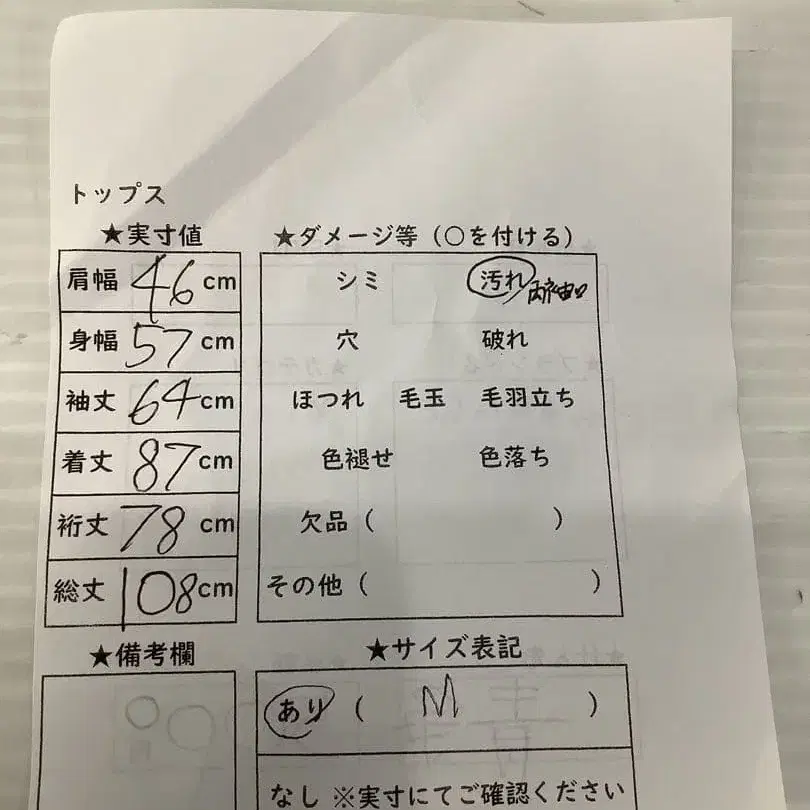 トップス
★実寸値
肩幅 46 cm
身幅 57 cm
袖丈 64 cm
着丈 87 cm
裄丈 78 cm
総丈 108 cm
★ダメージ等（○を付ける）
シミ 汚れ 両袖口
穴 破れ
ほつれ 毛玉 毛羽立ち
色褪せ 色落ち
欠品（ ）
その他（ ）
★備考欄
★サイズ表記
あり（ M ）
なし ※実寸にてご確認ください